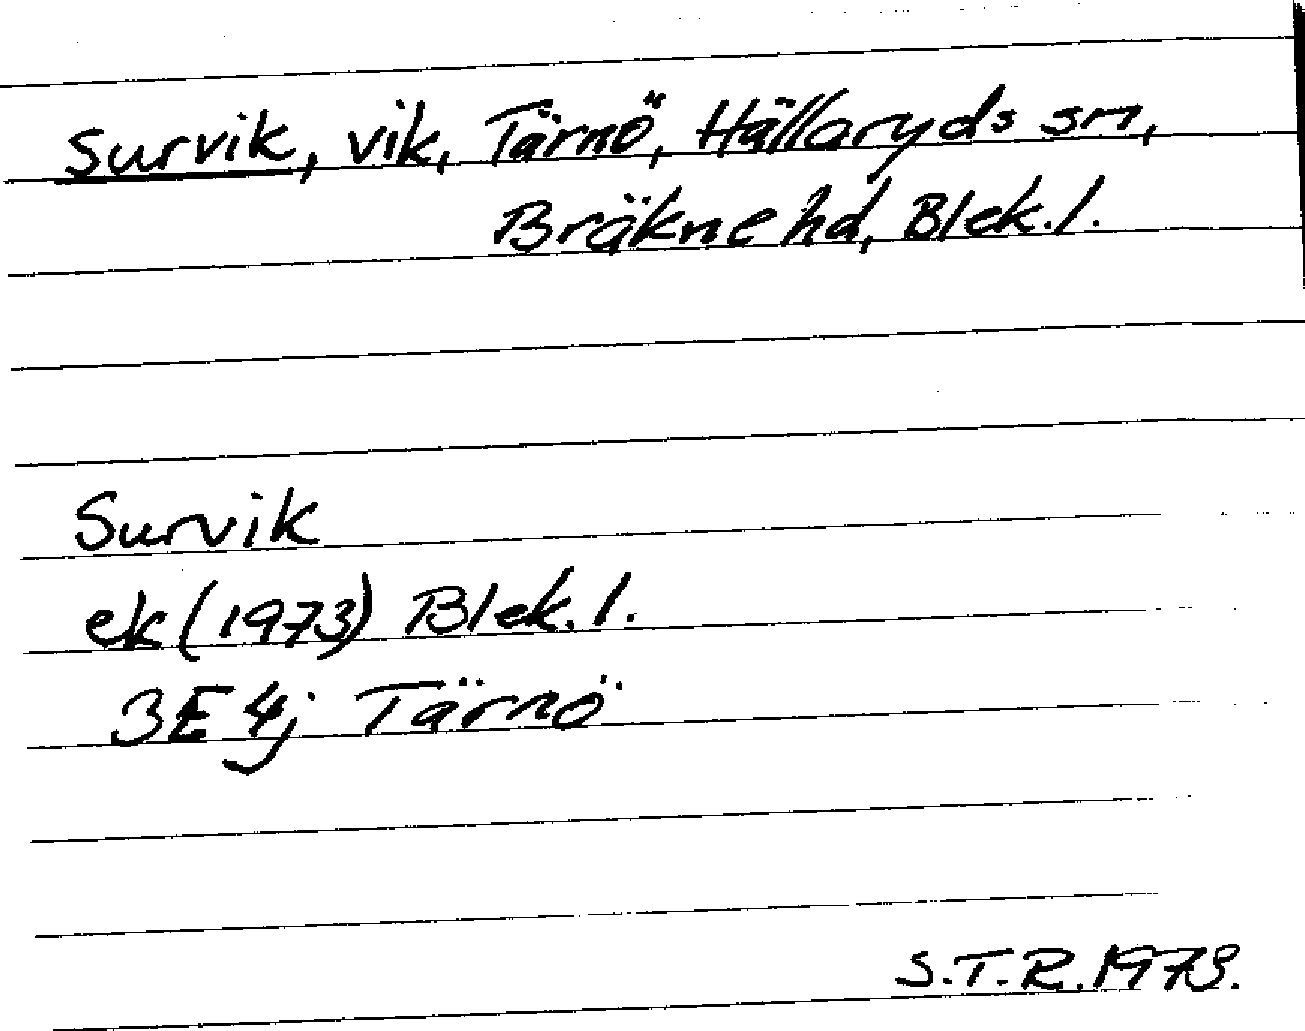 Survik, vik, Tärnö, Hällaryds sn,
Bräkne hd, Blek.l.
Survik
ek (1973) Blek.l.
3E 4j Tärnö
S.T.R. 1979.